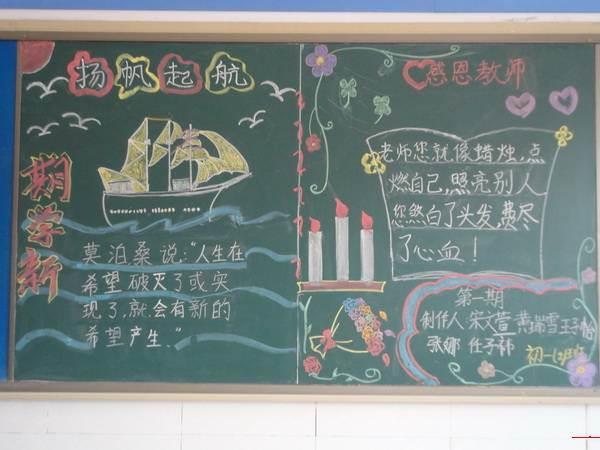 扬帆起航
期学新
莫泊桑说:“人生在
希望破灭了或实
现了,就会有新的
希望产生。”
感恩教师
老师您就像蜡烛,点
燃自己,照亮别人
您熬白了头发,费尽
了心血!
第一期
制作人:宋文萱 黄瑞雪 王子怡
张娜 任子祎
初一(2)班